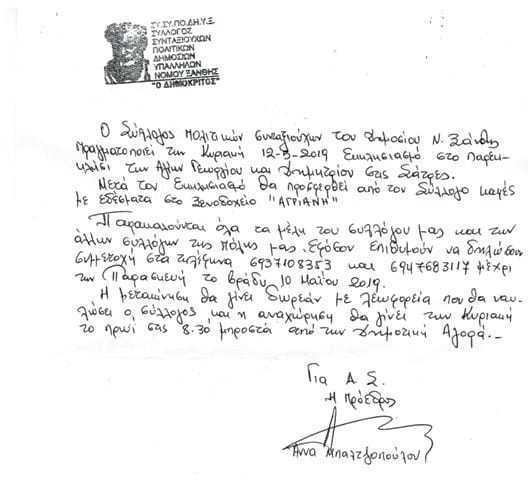 ΣΥ.ΣΥ.ΠΟ.ΔΗ.Υ.Ξ.
ΣΥΛΛΟΓΟΣ
ΣΥΝΤΑΞΙΟΥΧΩΝ
ΠΟΛΙΤΙΚΩΝ
ΔΗΜΟΣΙΩΝ
ΥΠΑΛΛΗΛΩΝ
ΝΟΜΟΥ ΞΑΝΘΗΣ
"Ο ΔΗΜΟΚΡΙΤΟΣ"
Ο Σύλλογος Πολιτικών Συνταξιούχων του Δημοσίου Ν. Ξάνθης
Πραγματοποιεί την Κυριακή 12-5-2019 Εκκλησιασμό στο Παρεκ-
κλήσι των Αγίων Γεωργίου και Δημητρίου στις Σάτρες.
Μετά τον Εκκλησιασμό θα προσφερθεί από τον Σύλλογο καφές
με εδέσματα στο Ξενοδοχείο "ΑΓΡΙΑΝΗ"
Παρακαλούνται όλα τα μέλη του συλλόγου μας και των
άλλων συλλόγων της πόλης μας. Εφόσον επιθυμούν να δηλώσουν
συμμετοχή στα τηλέφωνα 6937108353 και 6947683117 μέχρι
την Παρασκευή το βράδυ 10 Μαΐου 2019.
Η μετακίνηση θα γίνει δωρεάν με λεωφορεία που θα ναυ-
λώσει ο σύλλογος και η αναχώρηση θα γίνει την Κυριακή
το πρωί στις 8.30 μπροστά από την Δημοτική Αγορά.-
Για Δ.Σ.
Η Πρόεδρος
Άννα Μπαλτζοπούλου